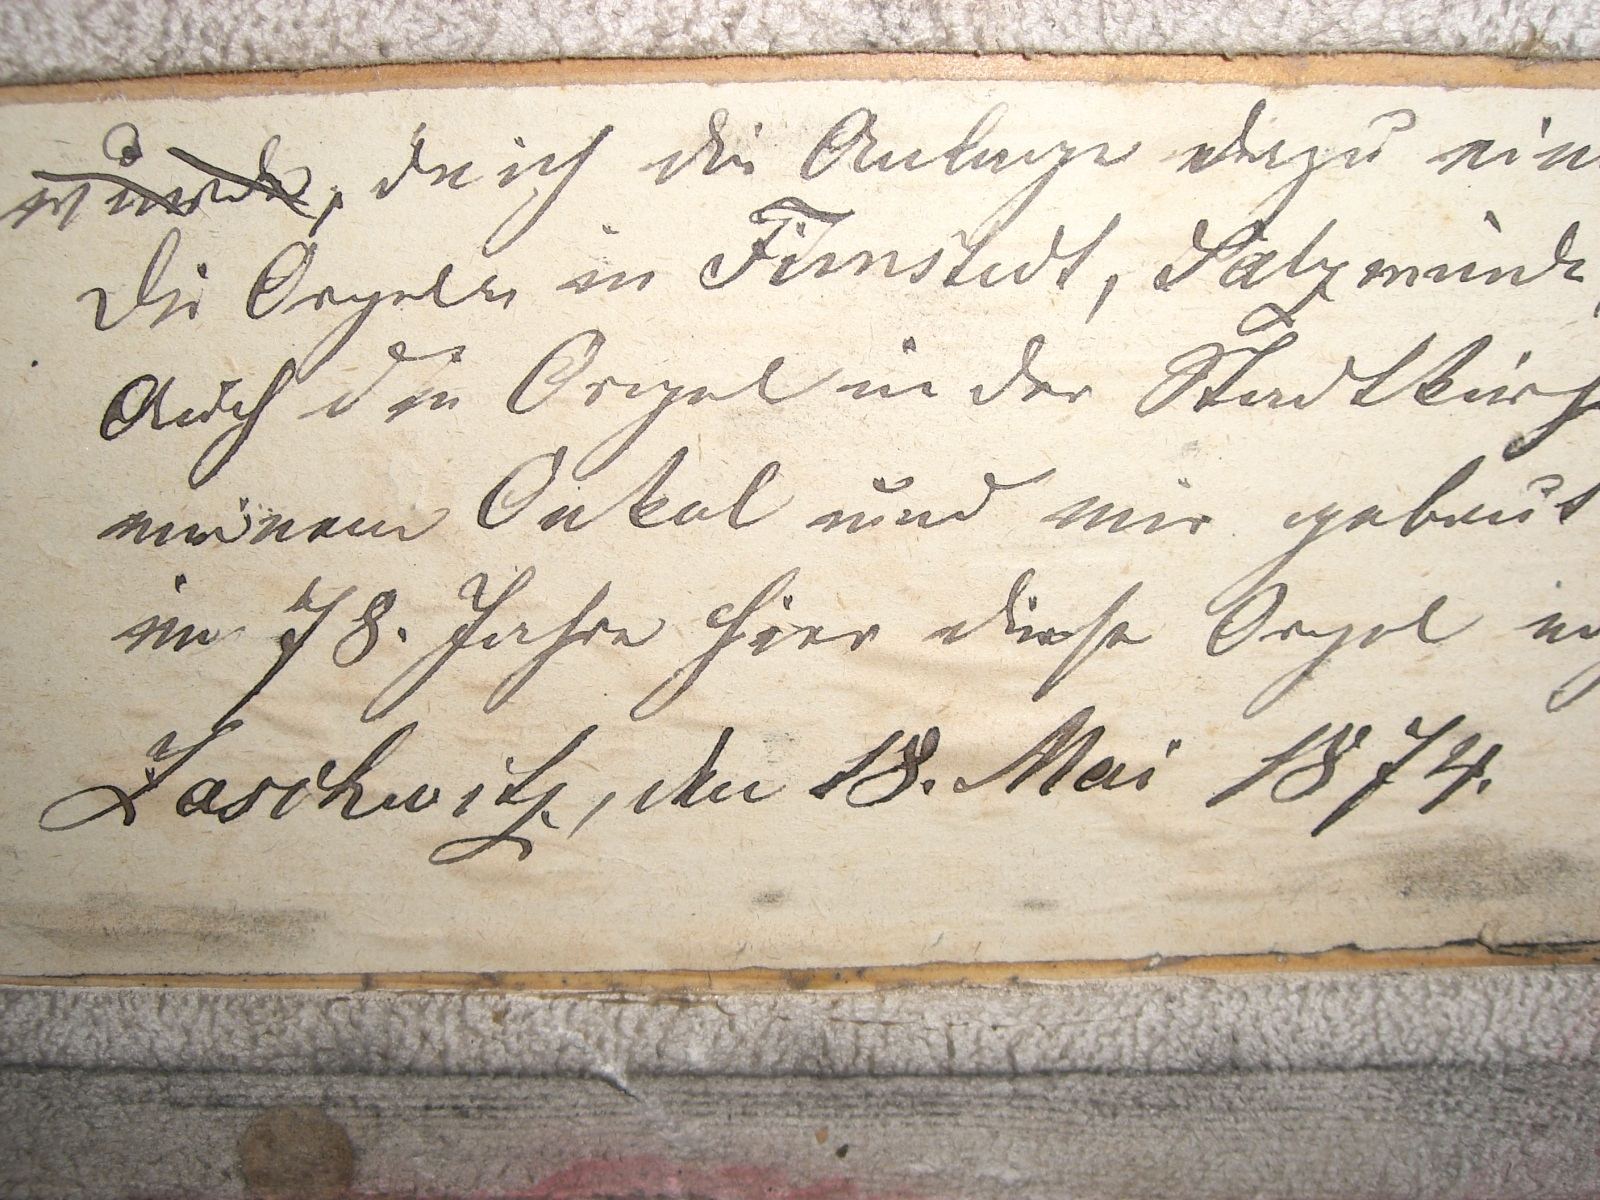 wurde, da ich die Anlage dazu ein
Die Orgeln in Fimstedt, Salzmünde,
Auch die Orgel in der Stadtkirch
meinem Onkel und mir gebaut
im 78. Jahre hier diese Orgel
Zaschwitz, den 18. Mai 1874.